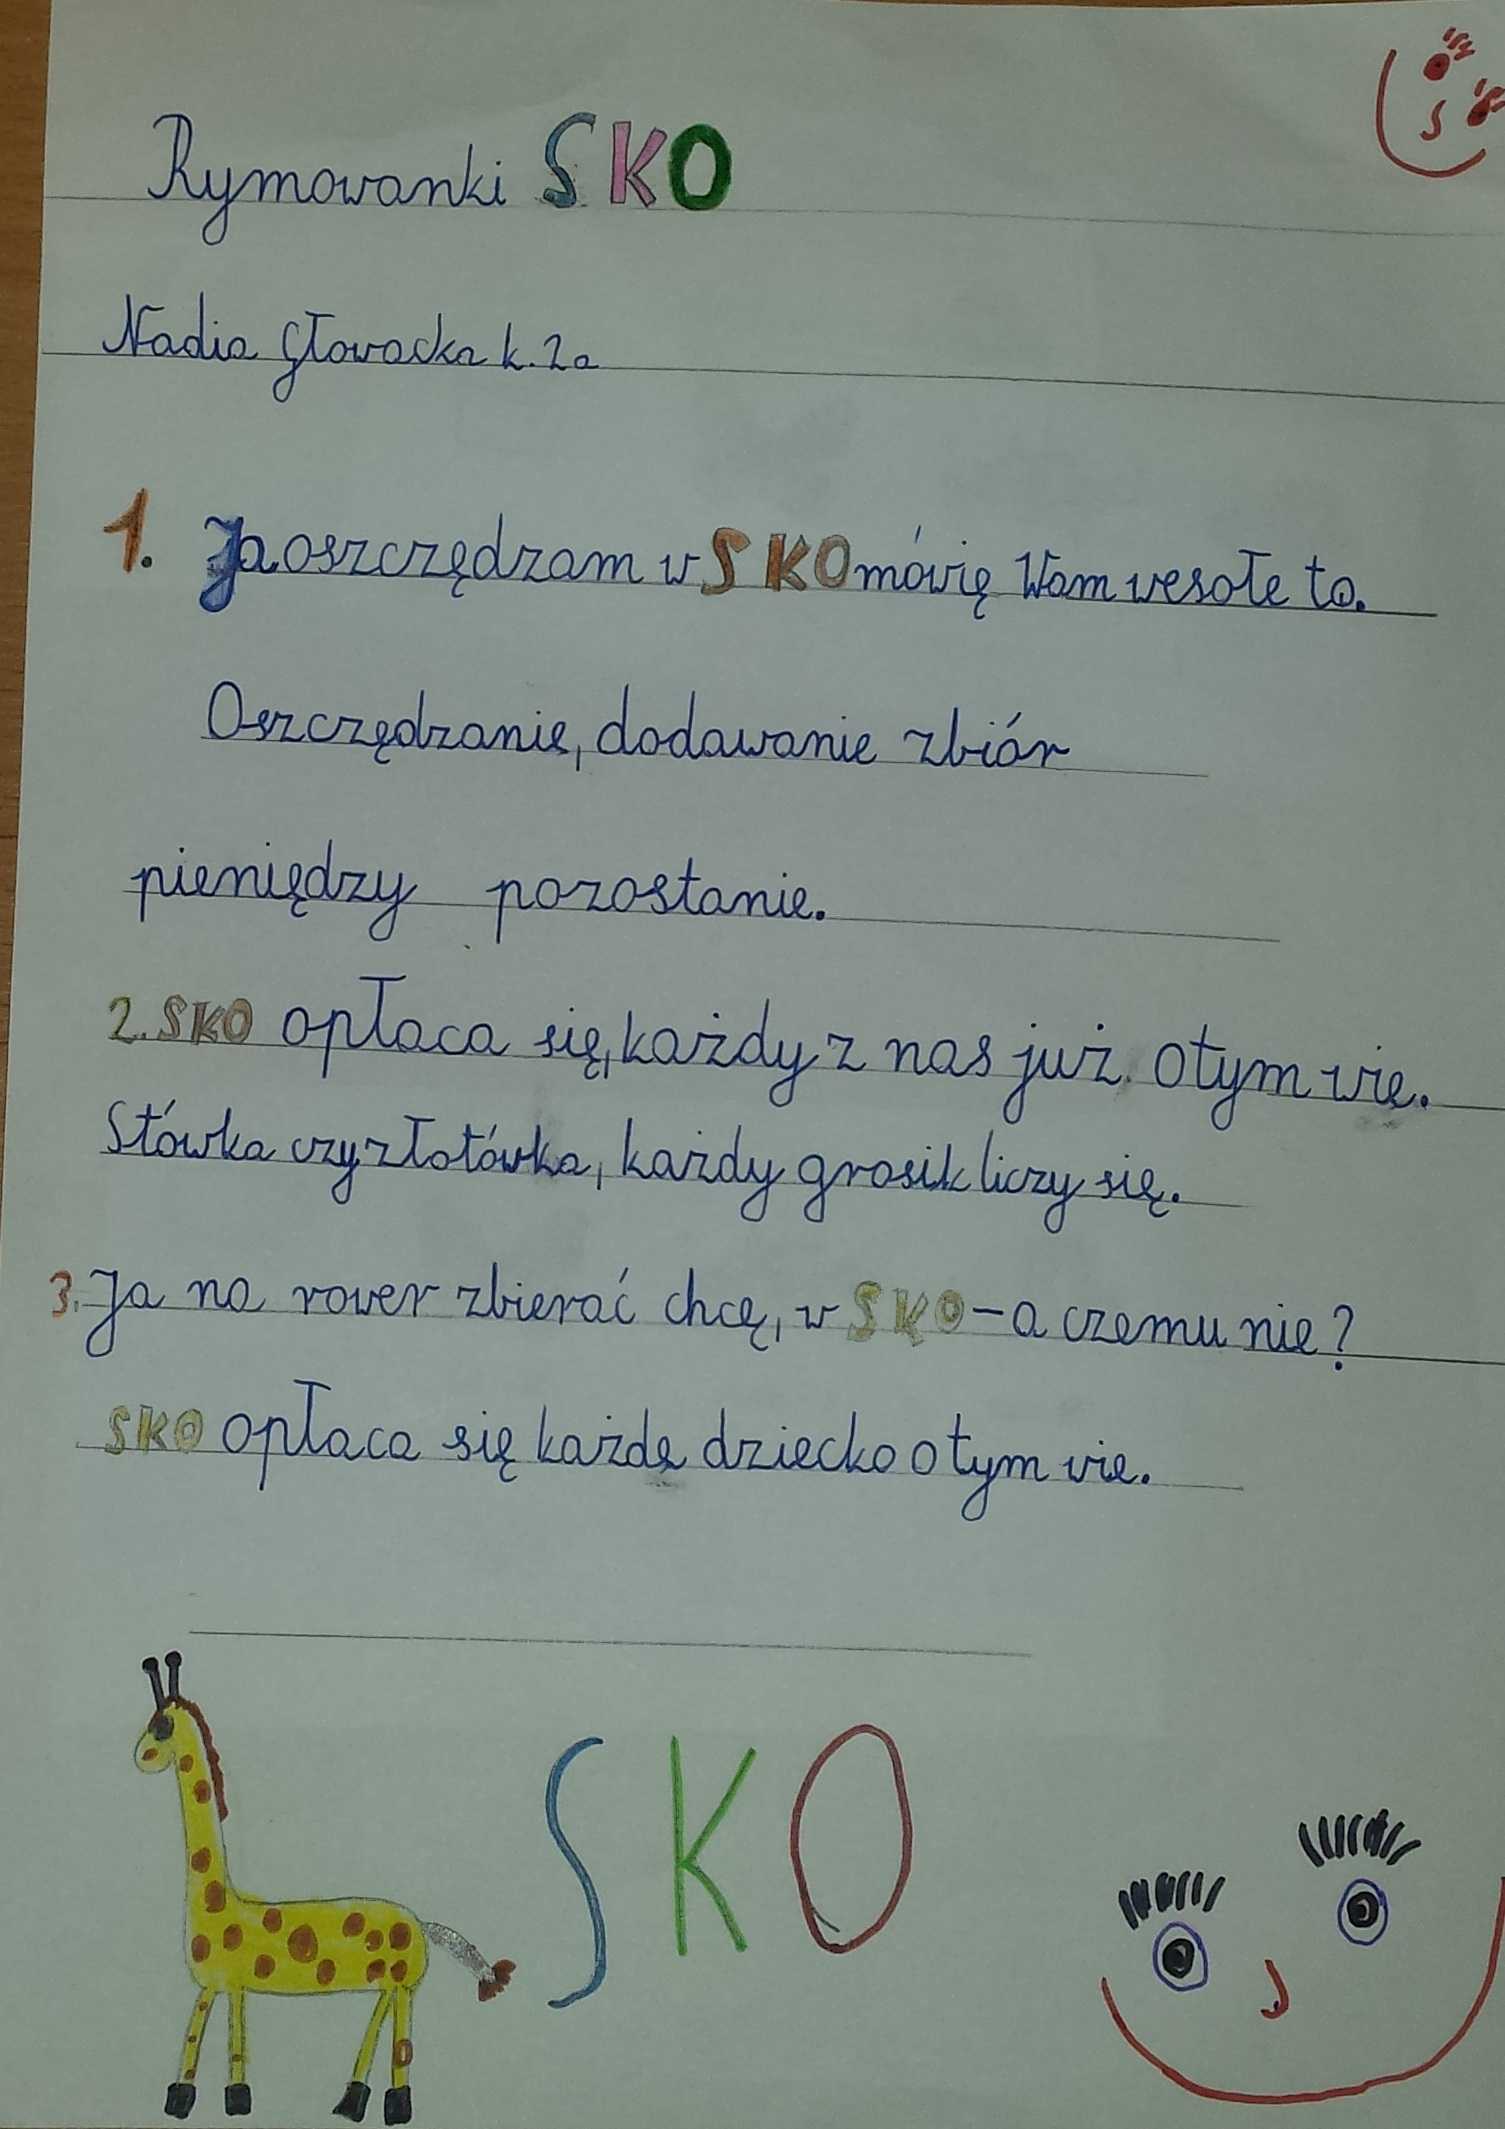 Rymowanki SKO
Nadia Głowacka k. 2a
1. Ja oszczędzam w SKO mówię Wam wesołe to.
Oszczędzanie, dodawanie zbiór
pieniędzy pozostanie.
2. SKO opłaca się, każdy z nas już o tym wie.
Stówka czy złotówka, każdy grosik liczy się.
3. Ja na rower zbierać chcę, w SKO - a czemu nie?
SKO opłaca się każde dziecko o tym wie.
SKO